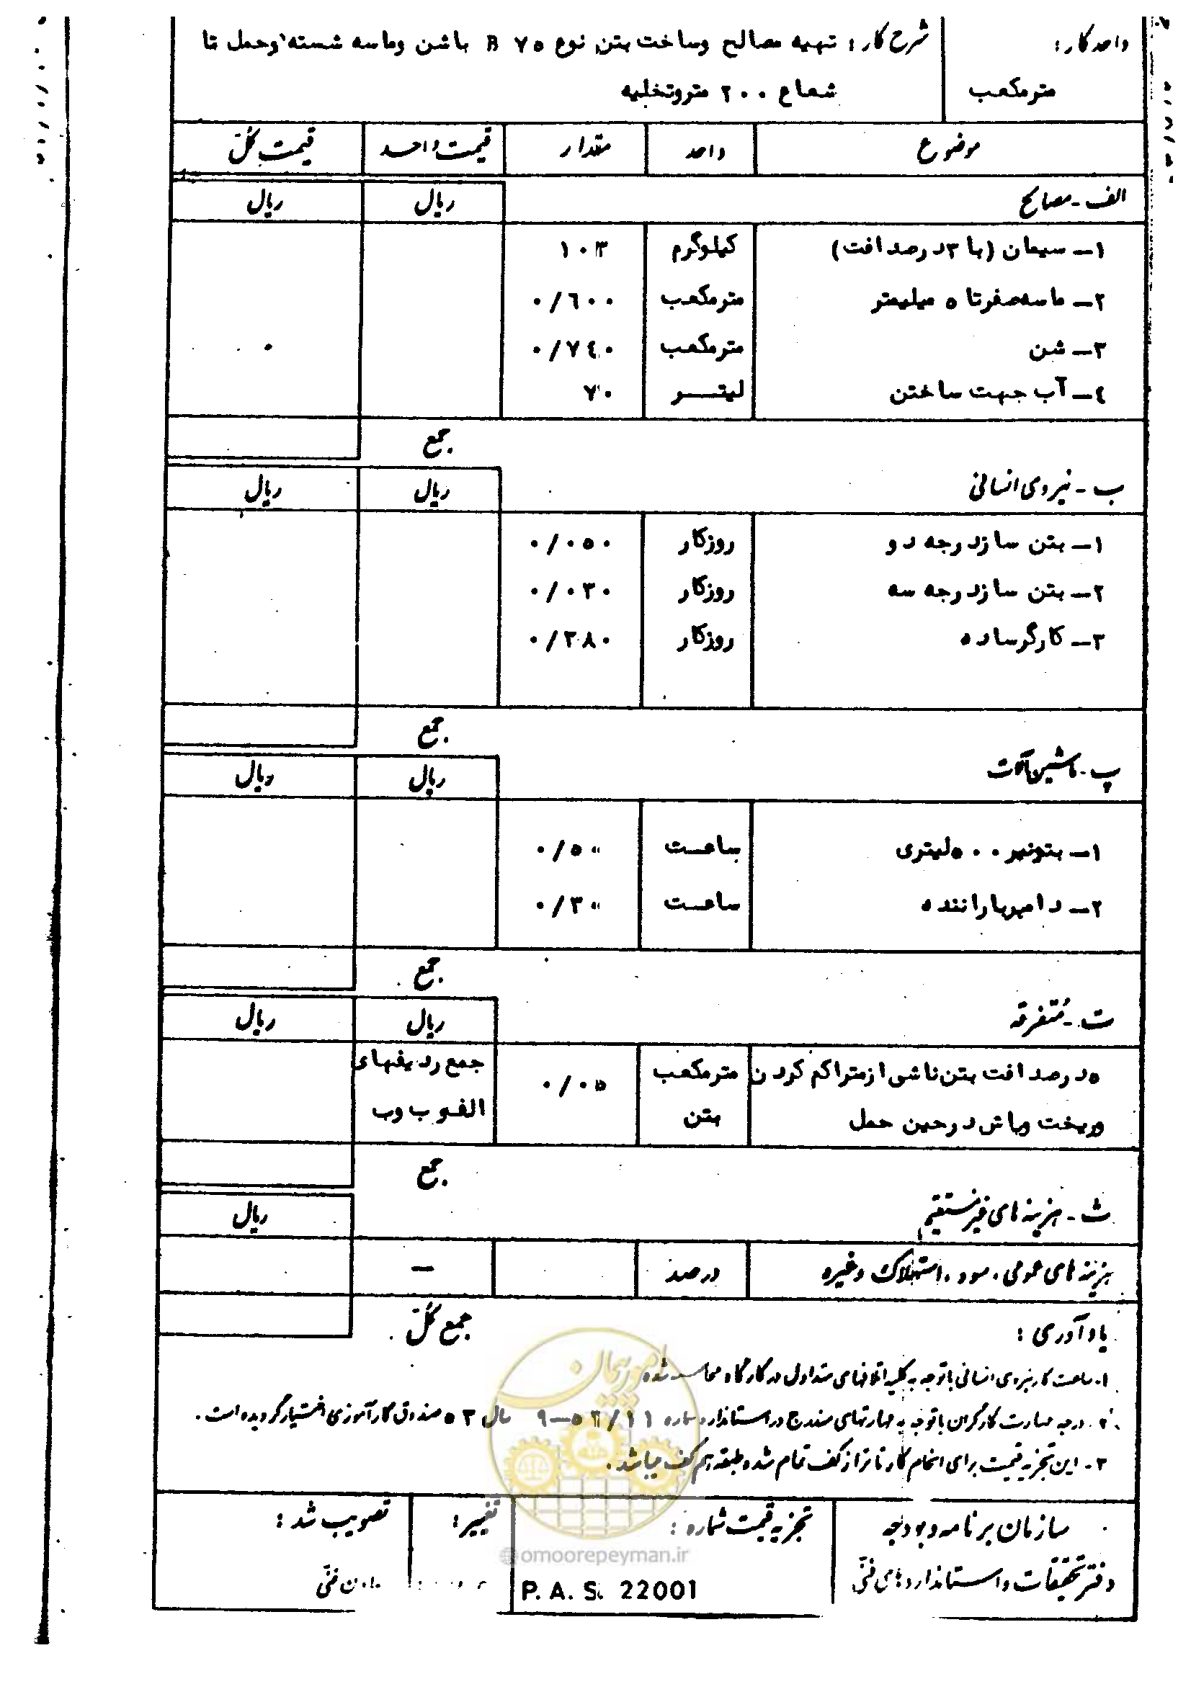 واحد کار:
شرح کار: تهیه مصالح وساخت بتن نوع B ۷۵ باشن وماسه شسته وحمل تا
مترمکعب
شعاع ۲۰۰ متروتخلیه
موضوع واحد مقدار قیمت واحد قیمت کل
الف - مصالح ریال ریال
۱- سیمان (با ۳درصد افت) کیلوگرم ۱۰۳
۲- ماسه‌صفرتا ۵ میلیمتر مترمکعب ۰/۶۰۰
۳- شن مترمکعب ۰/۷۴۰
۴- آب جهت ساختن لیتـــر ۷۰
جمع
ب - نیروی انسانی ریال ریال
۱- بتن ساز درجه دو روزکار ۰/۰۵۰
۲- بتن ساز درجه سه روزکار ۰/۰۳۰
۳- کارگرساده روزکار ۰/۳۸۰
جمع
پ - ماشین آلات ریال ریال
۱- بتونیر ۵۰۰ لیتری ساعت ۰/۵۰
۲- دامپر با راننده ساعت ۰/۳۰
جمع
ت - مُتفرقه ریال ریال
۵درصد افت بتن ناشی ازمتراکم کردن مترمکعب ۰/۰۵ جمع ردیفهای
وریخت وپاش درحین حمل بتن الف و ب و پ
جمع
ث - هزینه های غیرمستقیم ریال
هزینه های عمومی ، سود ، استهلاک وغیره درصد —
جمع کُلّ
یادآوری :
۱- ساعت کار نیروی انسانی باتوجه به کلیه اتلافهای متداول در کارگاه محاسبه شده
۲- درجه مهارت کارگران باتوجه به مهارتهای مندرج در استاندارد شماره ۵۲/۱۱–۹ سال ۵۳ صندوق کارآموزی اختیار گردیده است .
۳- این تجزیه قیمت برای انجام کار تا تراز کف تمام شده طبقه هم کف میباشد .
امور پیمان
omoorepeyman.ir
سازمان برنامه و بودجه
دفتر تحقیقات و استانداردهای فنّی
تجزیه قیمت شماره :
P. A. S. 22001
تغییر:
تصویب شد :
فنّی